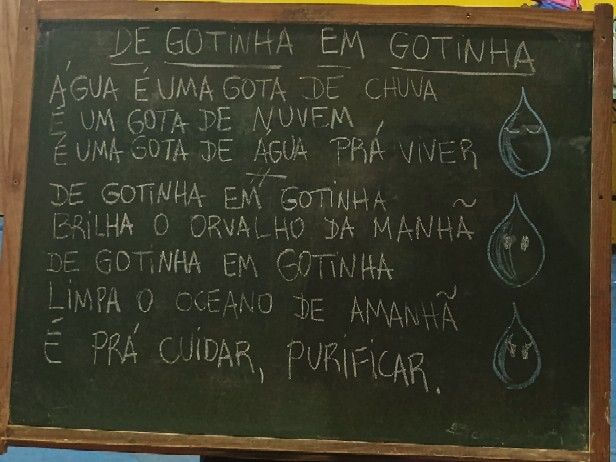 DE GOTINHA EM GOTINHA
ÁGUA É UMA GOTA DE CHUVA
É UM GOTA DE NUVEM
É UMA GOTA DE ÁGUA PRÁ VIVER
DE GOTINHA EM GOTINHA
BRILHA O ORVALHO DA MANHÃ
DE GOTINHA EM GOTINHA
LIMPA O OCEANO DE AMANHÃ
É PRÁ CUIDAR, PURIFICAR.